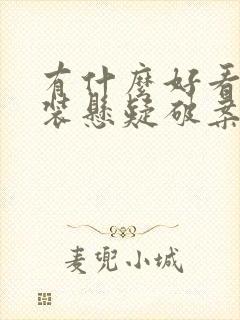 有什麼好看
裝懸疑破案
麦兜小城